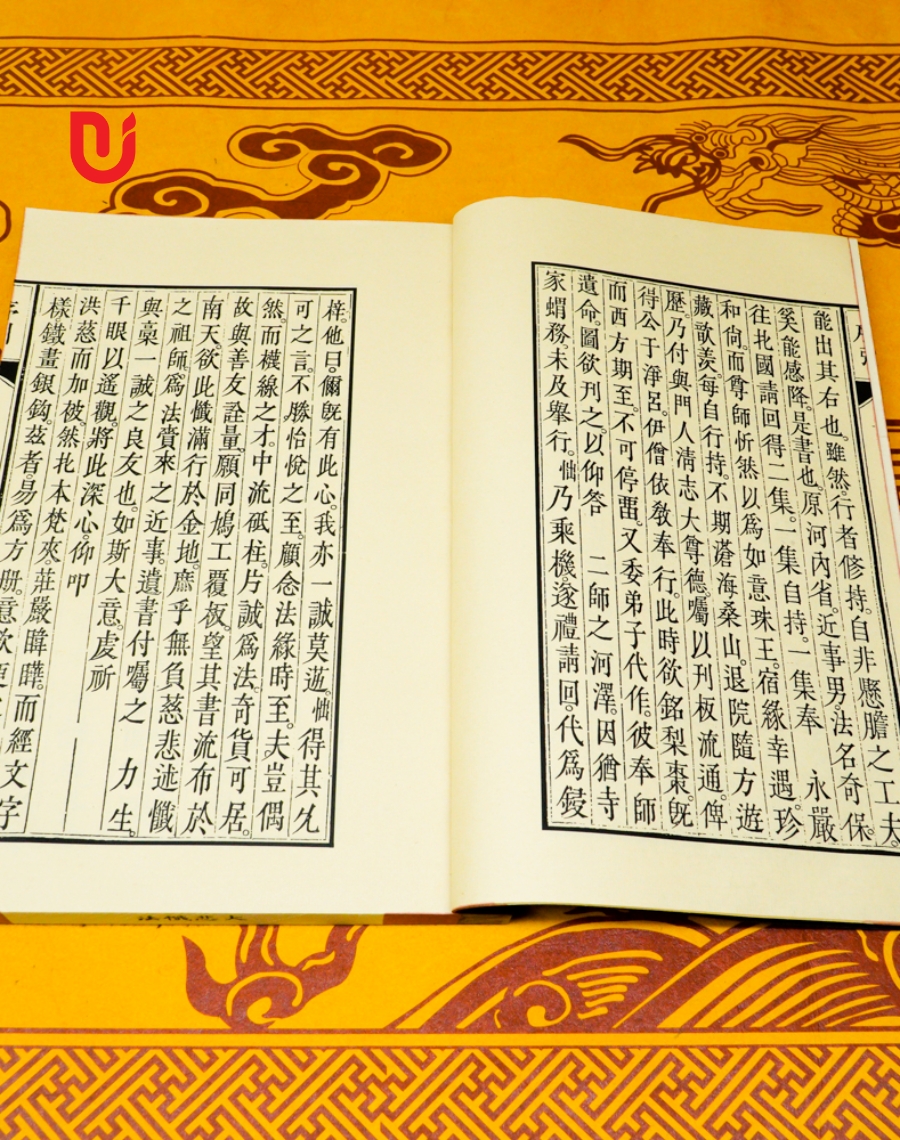 能出其右也。雖然。行者修持。自非懸膽之工夫。
奚能感降。是書也。原河內省。近事男。法名奇保。
往北國請回得二集。一集自持。一集奉 永嚴
和尙。而尊師忻然以爲如意珠王。宿緣幸遇。珍
藏歆羨。每自行持。不期滄海桑山。退院隨方遊
歷。乃付與門人淸志大尊德。囑以刊板流通。俾
得公于淨呂。伊僧依敎奉行。此時欲銘梨棗。旣
而西方期至。不可停畱。又委弟子代作。彼奉師
遺命。圖欲刋之。以仰答 二師之河澤。因猶寺
家蝟務。未及舉行。怞乃乘機。遂禮請回。代爲鋟
梓。他日。儞旣有此心。我亦一誠莫逝。怞得其允
可之言。不勝怡悅之至。顧念法緣時至。夫豈偶
然。而襪線之才。中流砥柱。片誠爲法。奇貨可居。
故與善友詮量。願同鳩工覆板。望其書流布於
南天。欲此懺滿行於金地。庶乎無負慈悲述懺
之祖師。爲法賫來之近事。遺書付囑之 力生。
與稾一誠之良友也。如斯大意。虔祈
千眼以遙觀。將此深心。仰叩
洪慈而加被。然北本梵夾。莊嚴暐曄。而經文字
樣鐵畫銀鈎。茲者。易爲方册。意欲更